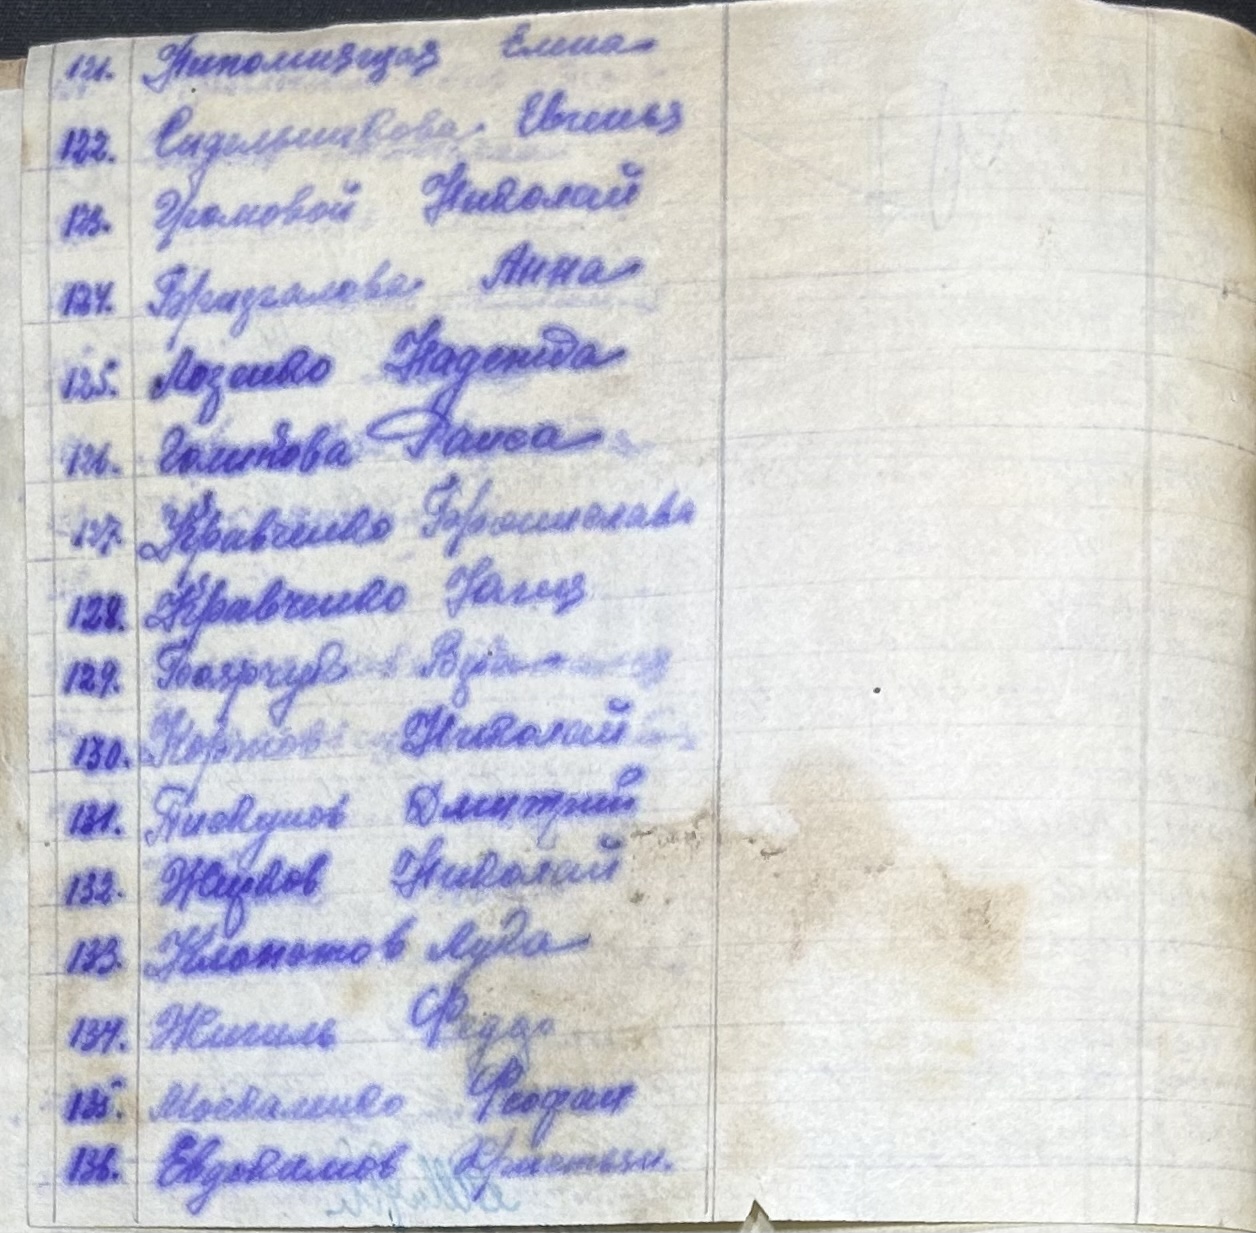 121. Житомирская Елена
122. Сидельникова Евгенья
123. Громовой Николай
124. Бригалова Анна
125. Лозенко Надежда
126. Голикова Раиса
127. Кравченко Бронислава
128. Кравченко
129. Боярчук
130. Коржов Николай
131. Пискунов Дмитрий
132. Жуков Николай
133. Клопотов Луда
134. Жигиль
135. Москаленко Феофан
136. Евдокимов